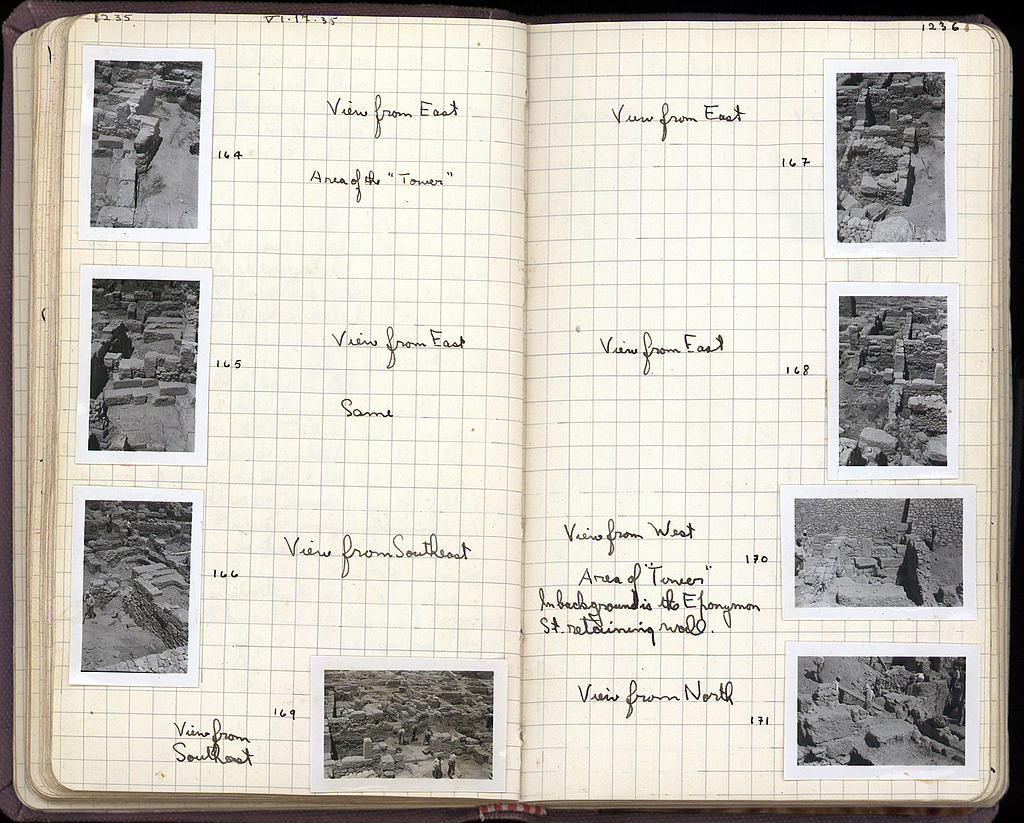 1235.
VI.17.35
View from East
164
Area of the "Tower"
View from East
165
Same
View from Southeast
166
169
View from
Southeast
1236
View from East
167
View from East
168
View from West
170
Area of "Tower"
In background is the Eponymon
St. retaining wall.
View from North
171